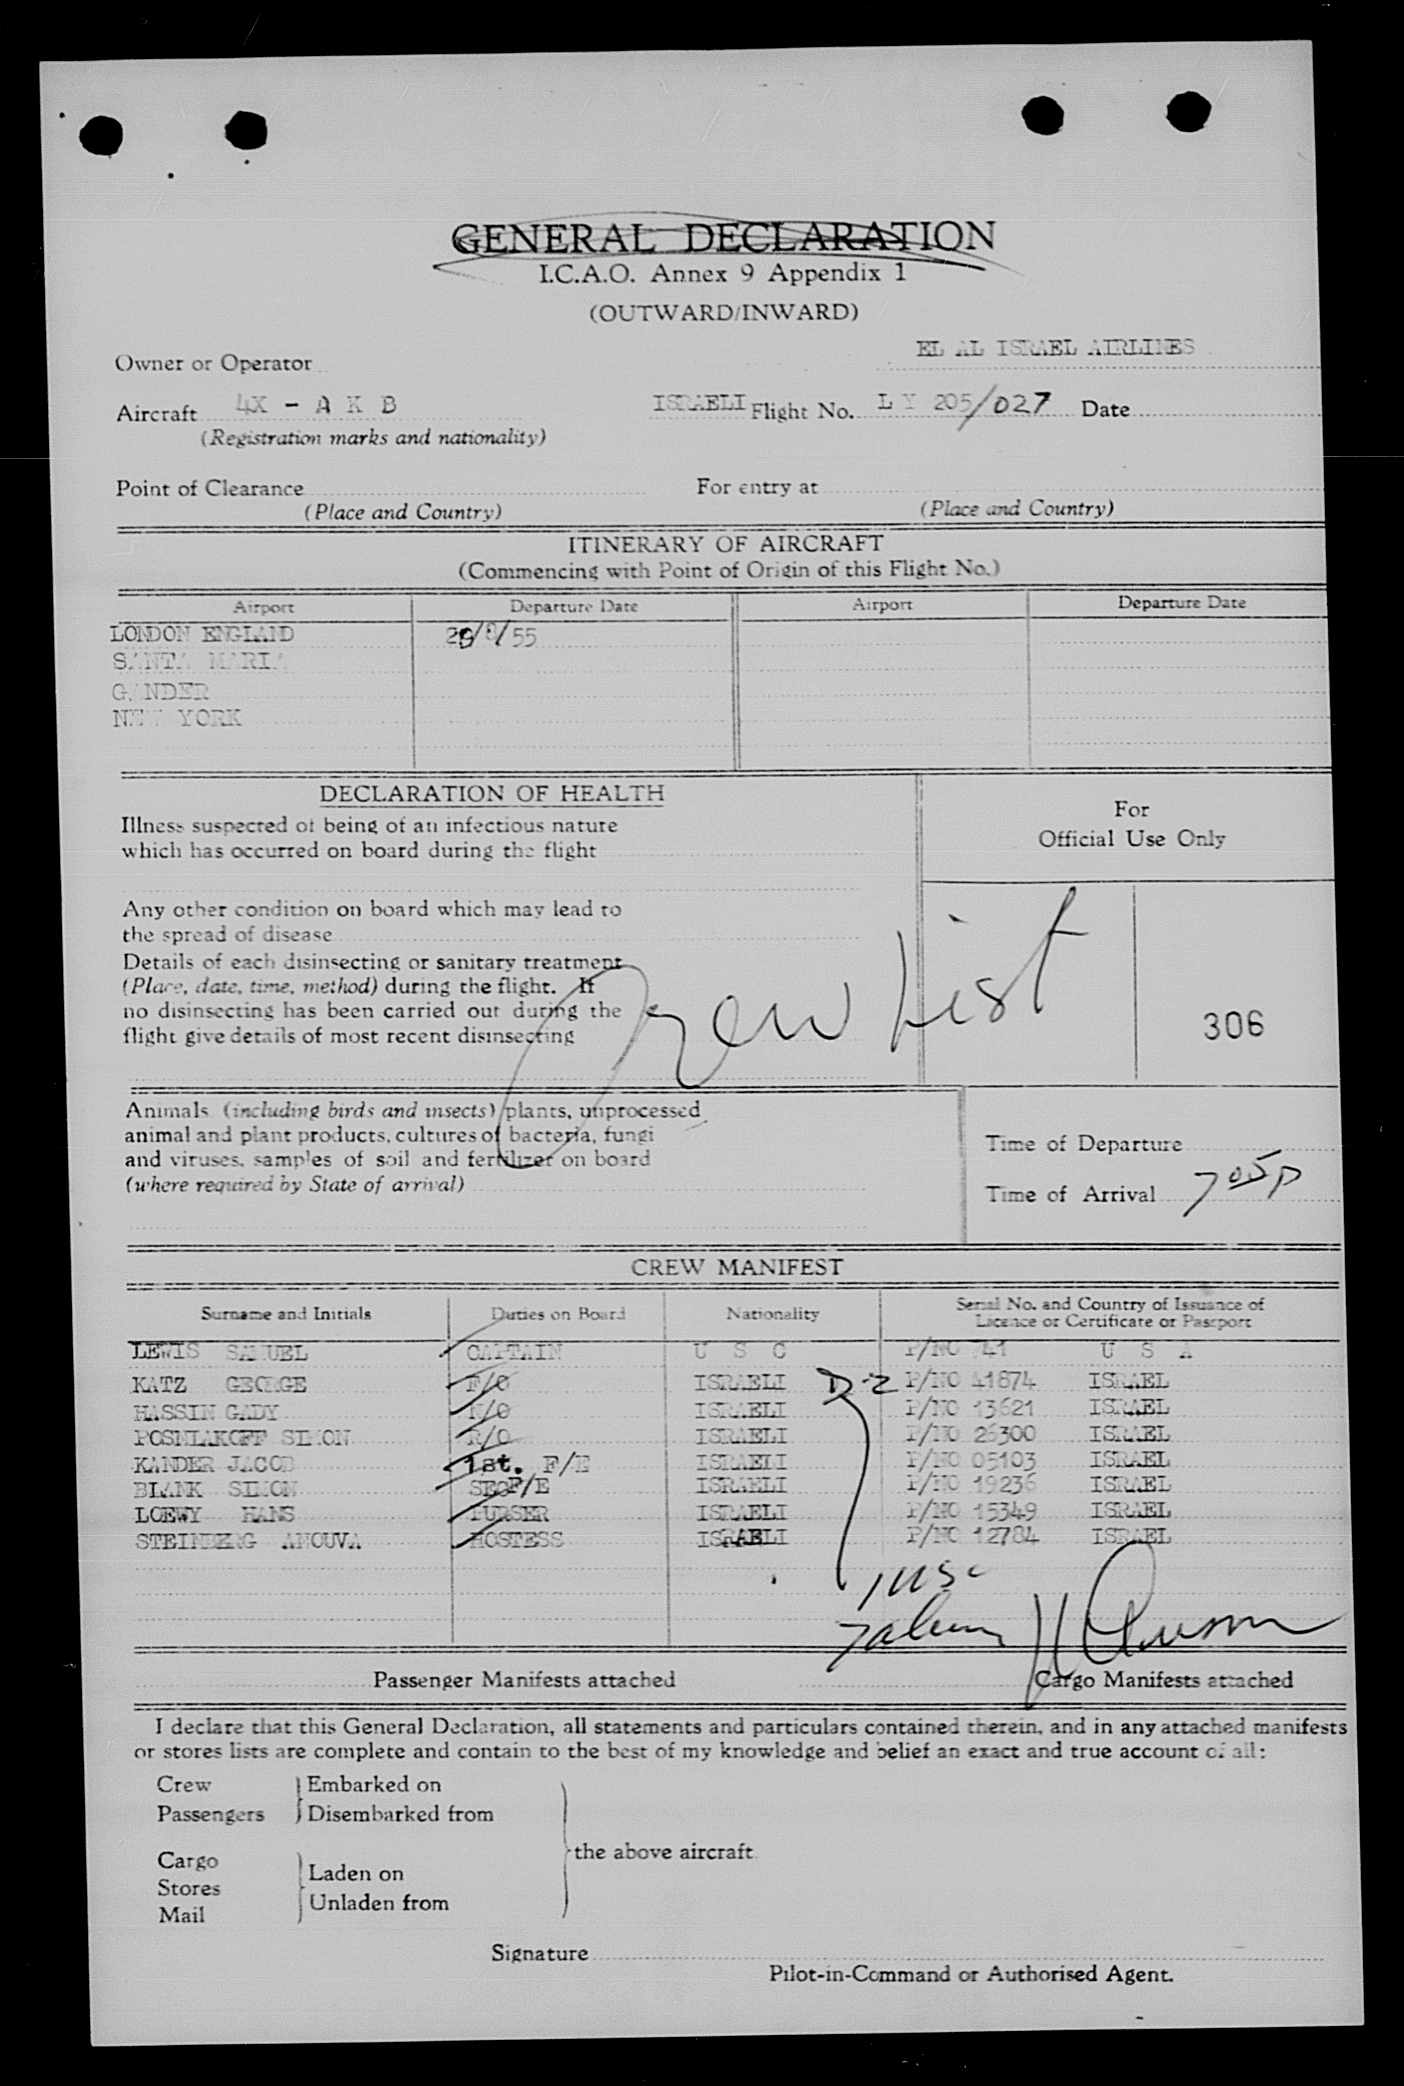 GENERAL DECLARATION
I.C.A.O. Annex 9 Appendix 1
(OUTWARD/INWARD)
Owner or Operator EL AL ISRAEL AIRLINES
Aircraft 4X - A K B ISRAELI Flight No. L Y 205/027 Date
(Registration marks and nationality)
Point of Clearance For entry at
(Place and Country) (Place and Country)
ITINERARY OF AIRCRAFT
(Commencing with Point of Origin of this Flight No.)
Airport Departure Date Airport Departure Date
LONDON ENGLAND /55
SANTA MARIA
GANDER
NEW YORK
DECLARATION OF HEALTH
For
Official Use Only
Illness suspected of being of an infectious nature
which has occurred on board during the flight
Any other condition on board which may lead to
the spread of disease
Details of each disinsecting or sanitary treatment
(Place, date, time, method) during the flight. If
no disinsecting has been carried out during the
flight give details of most recent disinsecting
Crew List
306
Animals (including birds and insects) plants, unprocessed
animal and plant products, cultures of bacteria, fungi
and viruses, samples of soil and fertilizer on board
(where required by State of arrival)
Time of Departure
Time of Arrival 705P
CREW MANIFEST
Surname and Initials Duties on Board Nationality Serial No. and Country of Issuance of
Licence or Certificate or Passport
LEWIS SAMUEL CAPTAIN U S C P/NO 741 U S A
KATZ GEORGE F/O ISRAELI D-2 P/NO 41874 ISRAEL
HASSIN GADY N/O ISRAELI P/NO 13621 ISRAEL
POSNIAKOFF SIMON R/O ISRAELI P/NO 26300 ISRAEL
KANDER JACOB 1st. F/E ISRAELI P/NO 05103 ISRAEL
BLANK SIMON SEC F/E ISRAELI P/NO 19236 ISRAEL
LOEWY HANS PURSER ISRAELI P/NO 15349 ISRAEL
STEINBERG AHOUVA HOSTESS ISRAELI P/NO 12784 ISRAEL
1 USC
7 alien
Passenger Manifests attached Cargo Manifests attached
I declare that this General Declaration, all statements and particulars contained therein, and in any attached manifests
or stores lists are complete and contain to the best of my knowledge and belief an exact and true account of all:
Crew Embarked on
Passengers Disembarked from
the above aircraft.
Cargo Laden on
Stores Unladen from
Mail
Signature
Pilot-in-Command or Authorised Agent.